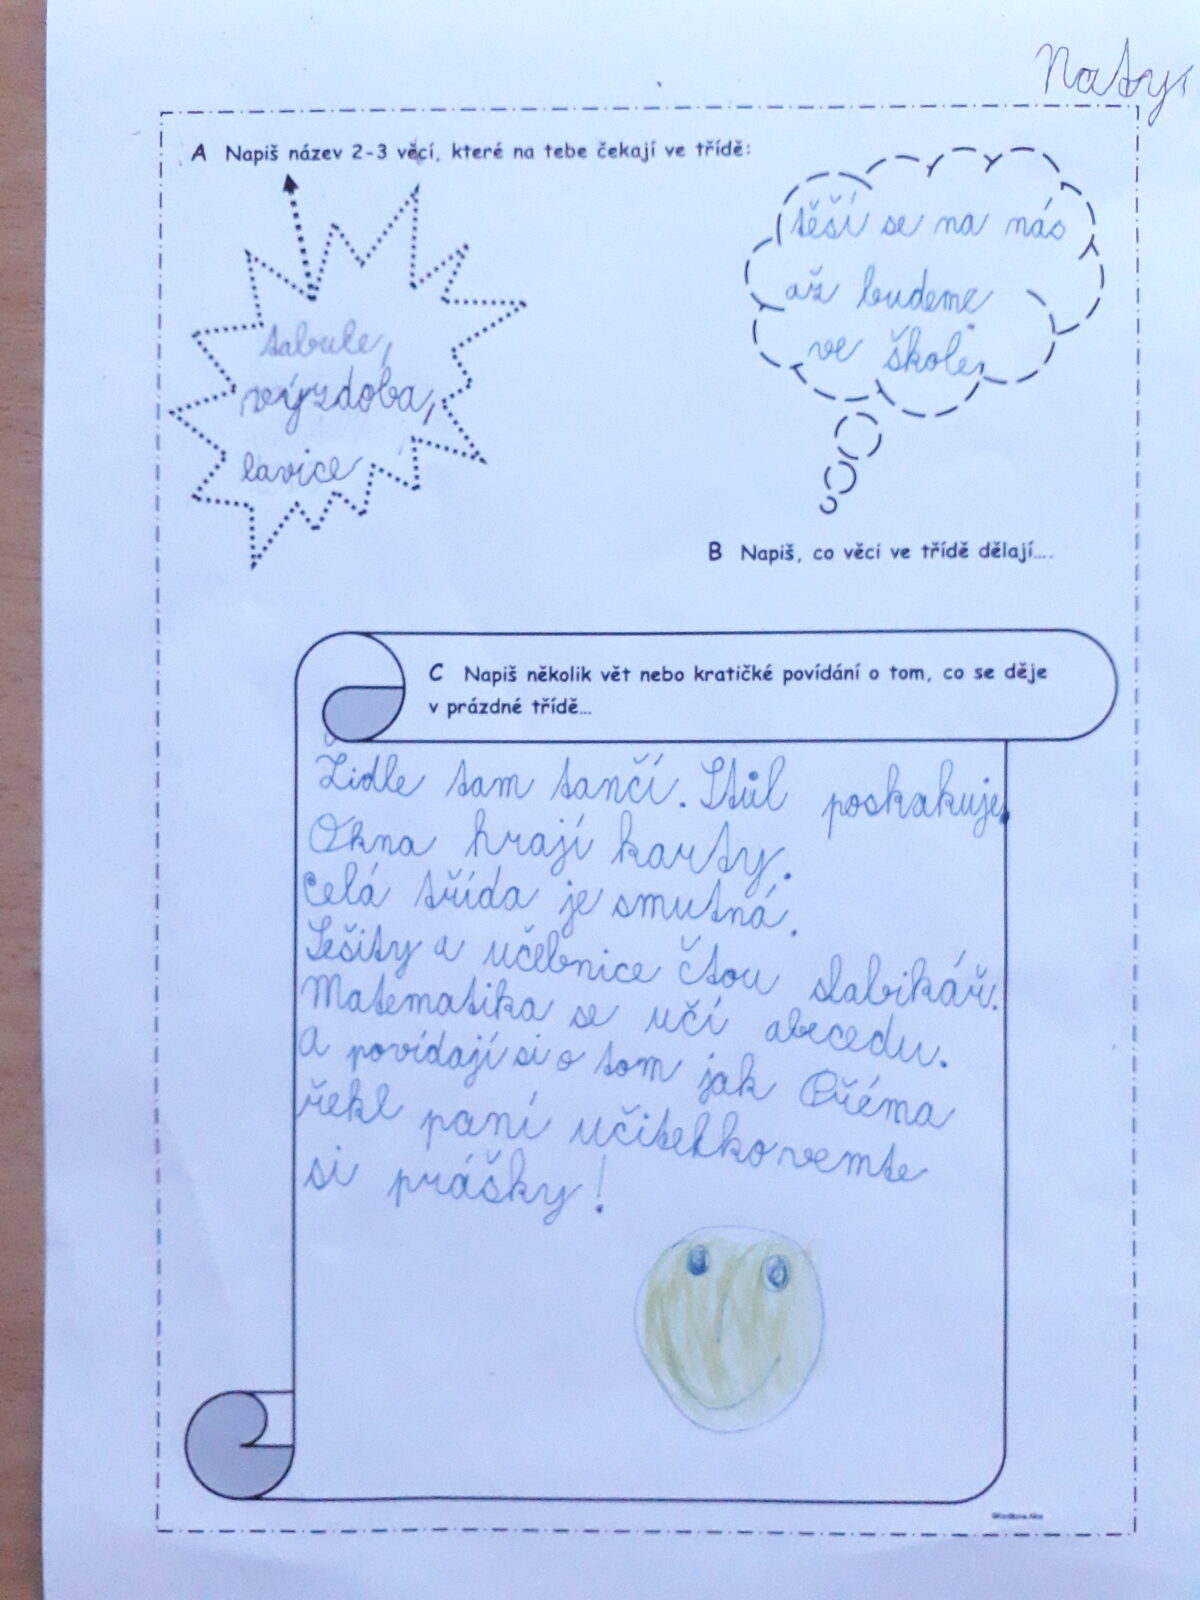 Naty
A Napiš název 2-3 věcí, které na tebe čekají ve třídě:
těší se na nás
až budeme
ve škole.
tabule,
výzdoba,
lavice
B Napiš, co věci ve třídě dělají....
C Napiš několik vět nebo kratičké povídání o tom, co se děje
v prázdné třídě...
Židle tam tančí. Stůl poskakuje.
Okna hrají karty.
celá třída je smutná.
Sešity a učebnice čtou slabikář.
Matematika se učí abecedu.
A povídají si o tom jak Přéma
řekl paní učitelko vemte
si prášky!